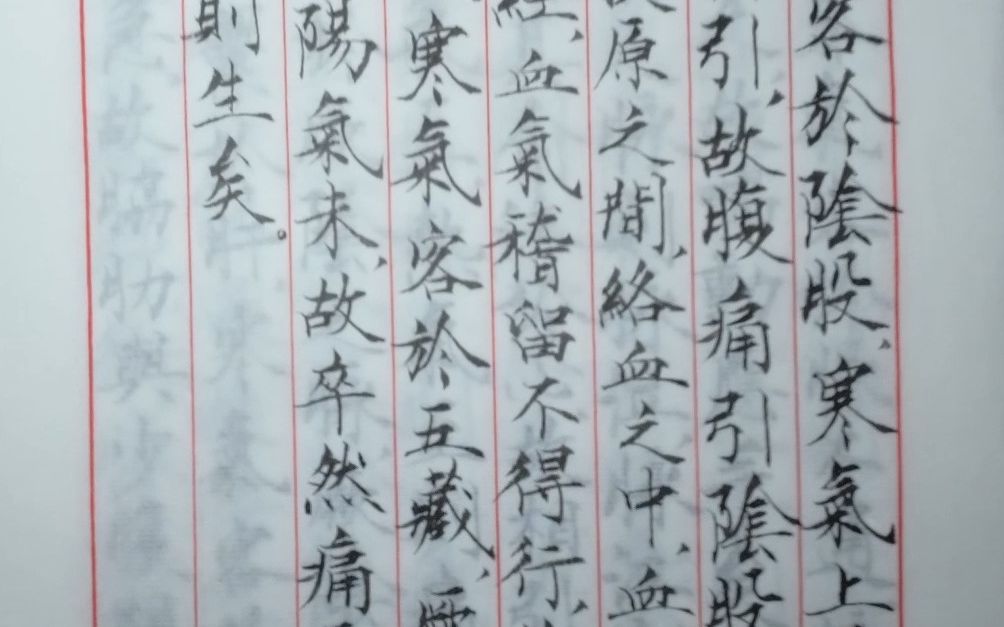 客於陰股、寒氣上
引、故腹痛引陰股
原之間、絡血之中、血
經、血氣稽留不得行、
寒氣客於五藏、
陽氣未、故卒然痛
則生矣。